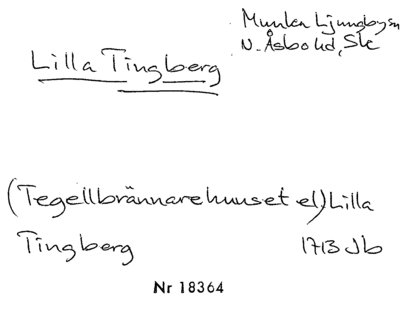 Munka Ljungbysn
N. Åsbo hd, Sk
Lilla Tingberg
(Tegellbrännarehuuset el) Lilla
Tingberg 1713 Jb
Nr 18364